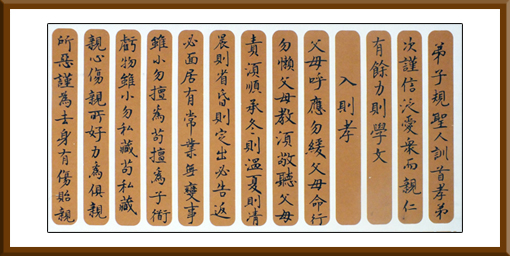 弟子規聖人訓首孝弟
次謹信泛愛衆而親仁
有餘力則學文
入則孝
父母呼應勿緩父母命行
勿懶父母教須敬聽父母
責須順承冬則溫夏則清
晨則省昏則定出必告返
必面居有常業無變事
雖小勿擅為苟擅為子衜
虧物雖小勿私藏苟私藏
親心傷親所好力為俱親
所惡謹為去身有傷貽親